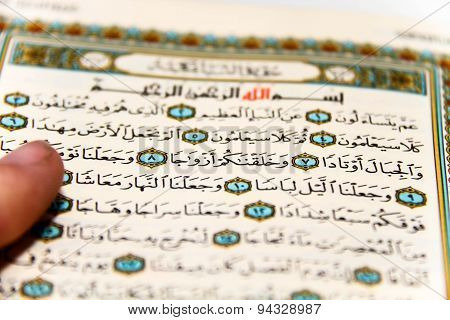 سُورَةُ النَّبَإِ مَكِّيَّة
بِسْمِ اللهِ الرَّحْمَنِ الرَّحِيمِ
عَمَّ يَتَسَاءَلُونَ ١ عَنِ النَّبَإِ الْعَظِيمِ ٢ الَّذِي هُمْ فِيهِ مُخْتَلِفُونَ ٣
كَلَّا سَيَعْلَمُونَ ٤ ثُمَّ كَلَّا سَيَعْلَمُونَ ٥ أَلَمْ نَجْعَلِ الْأَرْضَ مِهَدًا ٦
وَالْجِبَالَ أَوْتَادًا ٧ وَخَلَقْنَكُمْ أَزْوَاجًا ٨ وَجَعَلْنَا نَوْمَكُمْ
٩ وَجَعَلْنَا الَّيْلَ لِبَاسًا ١٠ وَجَعَلْنَا النَّهَارَ مَعَاشًا ١١
فَوْقَكُمْ سَبْعًا شِدَادًا ١٢ وَجَعَلْنَا سِرَاجًا وَهَّاجًا ١٣
مِنَ الْمُعْصِرَاتِ مَاءً ثَجَّاجًا ١٤ لِنُخْرِجَ بِهِ حَبًّا وَنَبَاتًا ١٥
إِنَّ يَوْمَ الْفَصْلِ كَانَ مِيقَاتًا ١٧ يَوْمَ يُنفَخُ